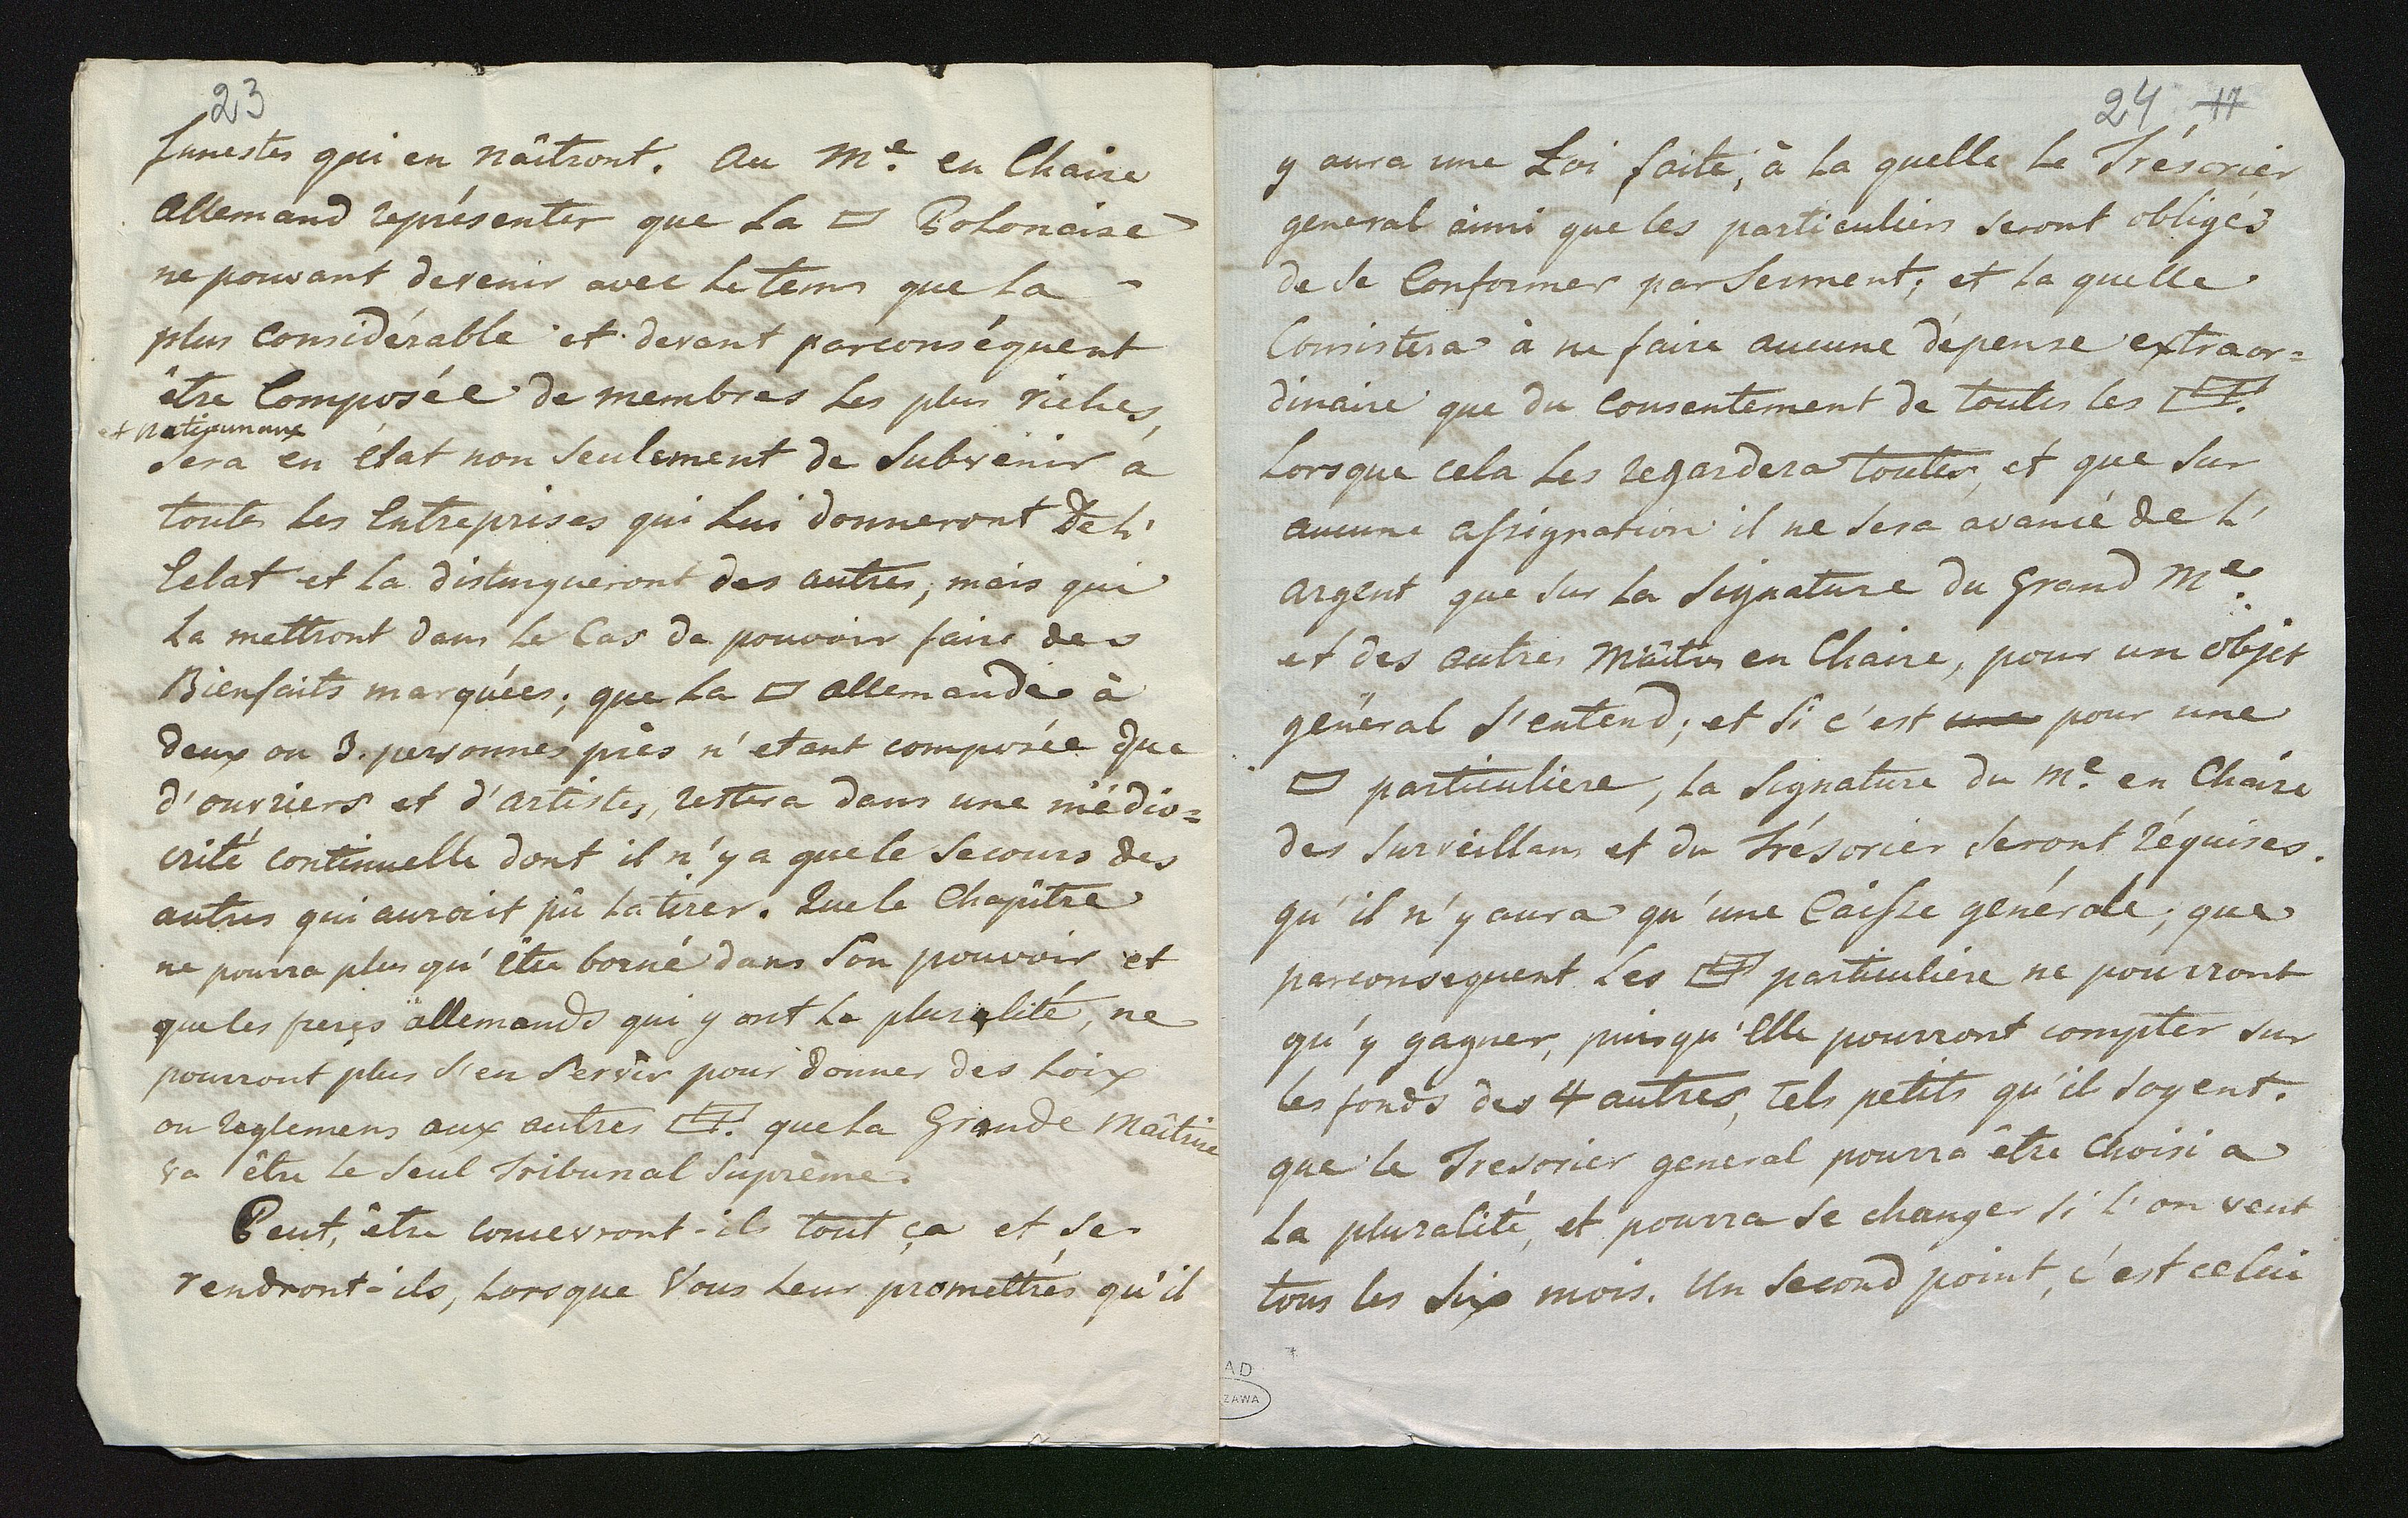 23
funestes qui en nâitront. Au Me. en Chaire
Allemand représenter que la ▭ Polonaise
ne pouvant devenir avec le tems que la
plus Considérable et devant parconséquent
être Composée de membres les plus riches,
et nationaux
Sera en état non seulement de Subvenir à
toutes les Entreprises qui lui donneront de l'
Eclat et la distingueront des autres, mais qui
la mettront dans le Cas de pouvoir faire des
Bienfaits marquées; que la ▭ allemande à
deux ou 3. personnes près n'etant composée que
d'ouvriers et d'artistes, restera dans une médio=
crité continuelle dont il n'y a que le Secours des
autres qui auroit pû la tirer. Que le Chapître
ne pourra plus qu'être borné dans son pouvoir et
que les freres allemands qui y ont la pluralité, ne
pourront plus s'en Servir pour donner des Loix
ou reglemens aux autres ▭▭. que la Grande Maîtrise
va être le Seul Tribunal Suprême.
Peut, être concevront-ils tout ça et se
rendront-ils, lorsque Vous leur promettrés qu'il
24 17
y aura une Loi faite, à la quelle le Trésorier
general ainsi que les particuliers seront obligés
de se Conformer par Serment; et la quelle
Consistera à ne faire aucune dépense extraor=
dinaire que du Consentement de toutes les ▭▭.
Lorsque cela les regardera toutes, et que sur
aucune assignation il ne sera avancé de l'
argent que sur la Signature du Grand Me.
et des autres Maîtres en Chaire, pour un objet
général s'entend; et si c'est une pour une
▭ particuliere, la Signature du Me. en Chaire
des Surveillans et du Trésorier Seront réquises.
qu'il n'y aura qu'une Caisse générale; que
parconsequent les ▭▭ particuliere ne pourront
qu'y gagner, puisqu'Elle pourront compter sur
les fonds des 4 autres, tels petits qu'il soyent.
que le Tresorier general pourra être Choisi a
la pluralité, et pourra se changer si l'on veut
tous les six mois. Un Second point, c'est celui
AD
ZAWA